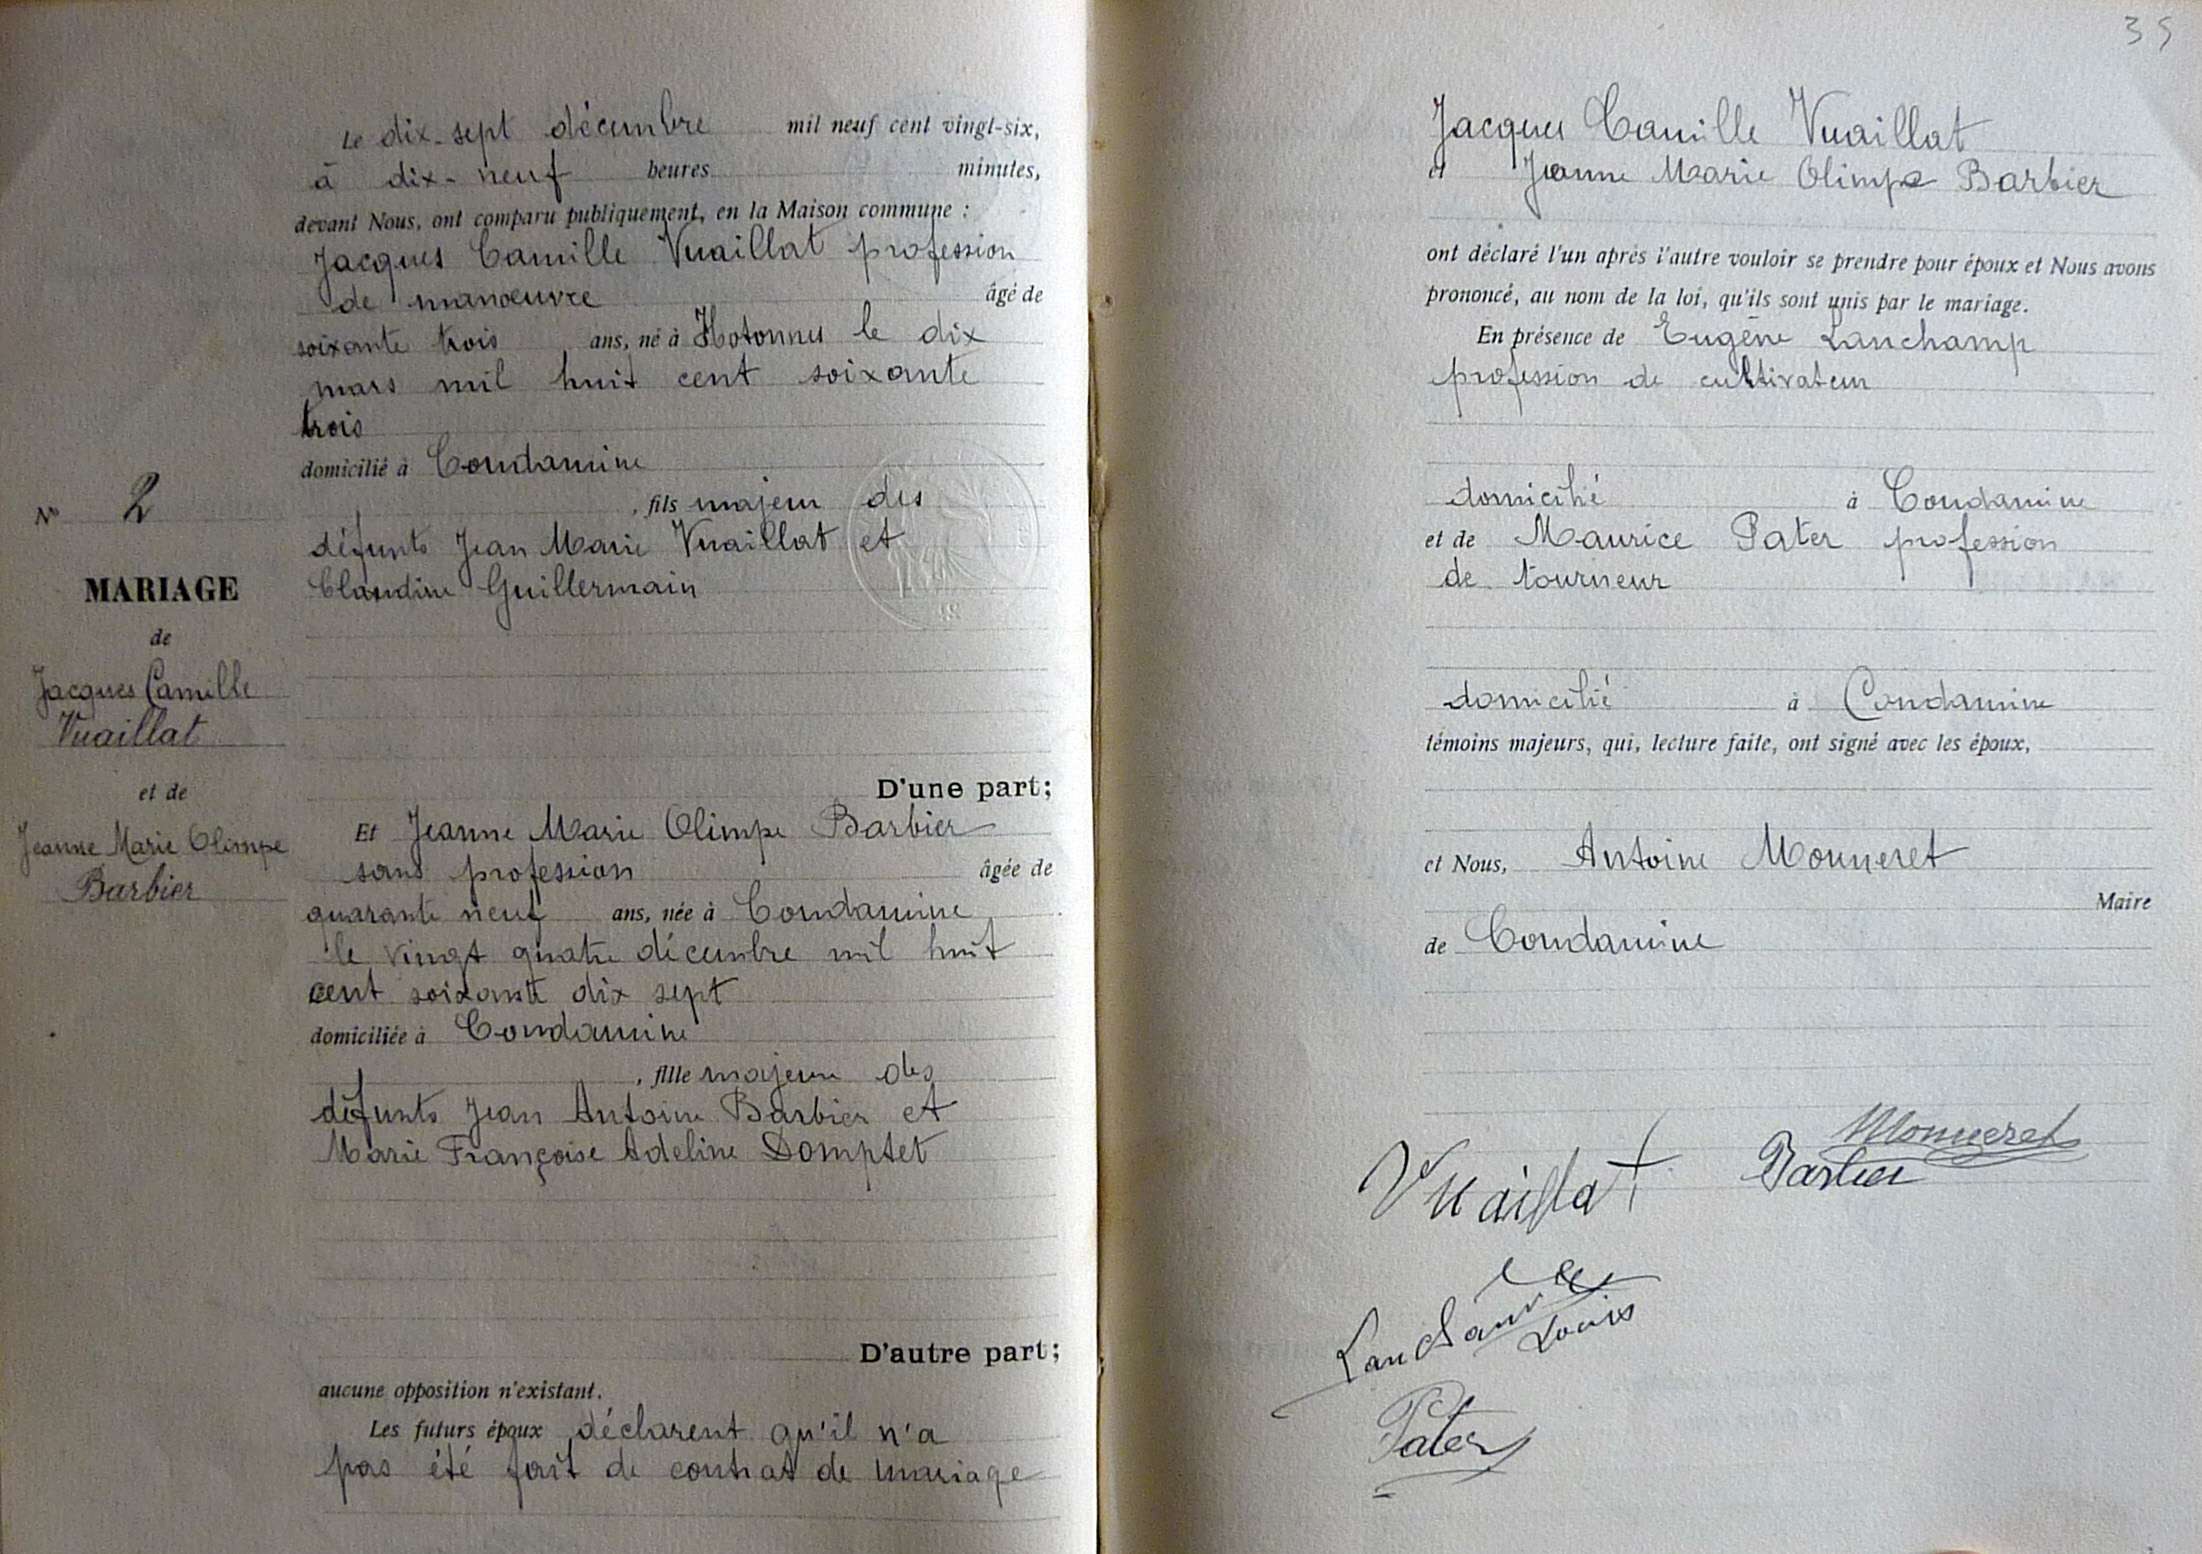 Le dix-sept décembre mil neuf cent vingt-six,
à dix-neuf heures minutes,
devant Nous, ont comparu publiquement, en la Maison commune :
Jacques Camille Vuaillat profession
de manoeuvre âgé de
soixante trois ans, né à Hotonnes le dix
mars mil huit cent soixante
trois
domicilié à Condamine
, fils majeur des
défunts Jean Marie Vuaillat et
Claudine Guillermain
D'une part;
Et Jeanne Marie Olimpe Barbier
sans profession âgée de
quarante neuf ans, née à Condamine
le vingt quatre décembre mil huit
cent soixante dix sept
domiciliée à Condamine
, fille majeure des
défunts Jean Antoine Barbier et
Marie Françoise Adeline Domptet
D'autre part;
aucune opposition n'existant.
Les futurs époux déclarent qu'il n'a
pas été fait de contrat de mariage
No 2
MARIAGE
de
Jacques Camille
Vuaillat
et de
Jeanne Marie Olimpe
Barbier
35
Jacques Camille Vuaillat
et Jeanne Marie Olimpe Barbier
ont déclaré l'un après l'autre vouloir se prendre pour époux et Nous avons
prononcé, au nom de la loi, qu'ils sont unis par le mariage.
En présence de Eugène Lanchamp
profession de cultivateur
domicilié à Condamine
et de Maurice Pater profession
de tourneur
domicilié à Condamine
témoins majeurs, qui, lecture faite, ont signé avec les époux,
et Nous, Antoine Monneret
Maire
de Condamine
Monneret
Vuaillat Barbier
Louis
Pater